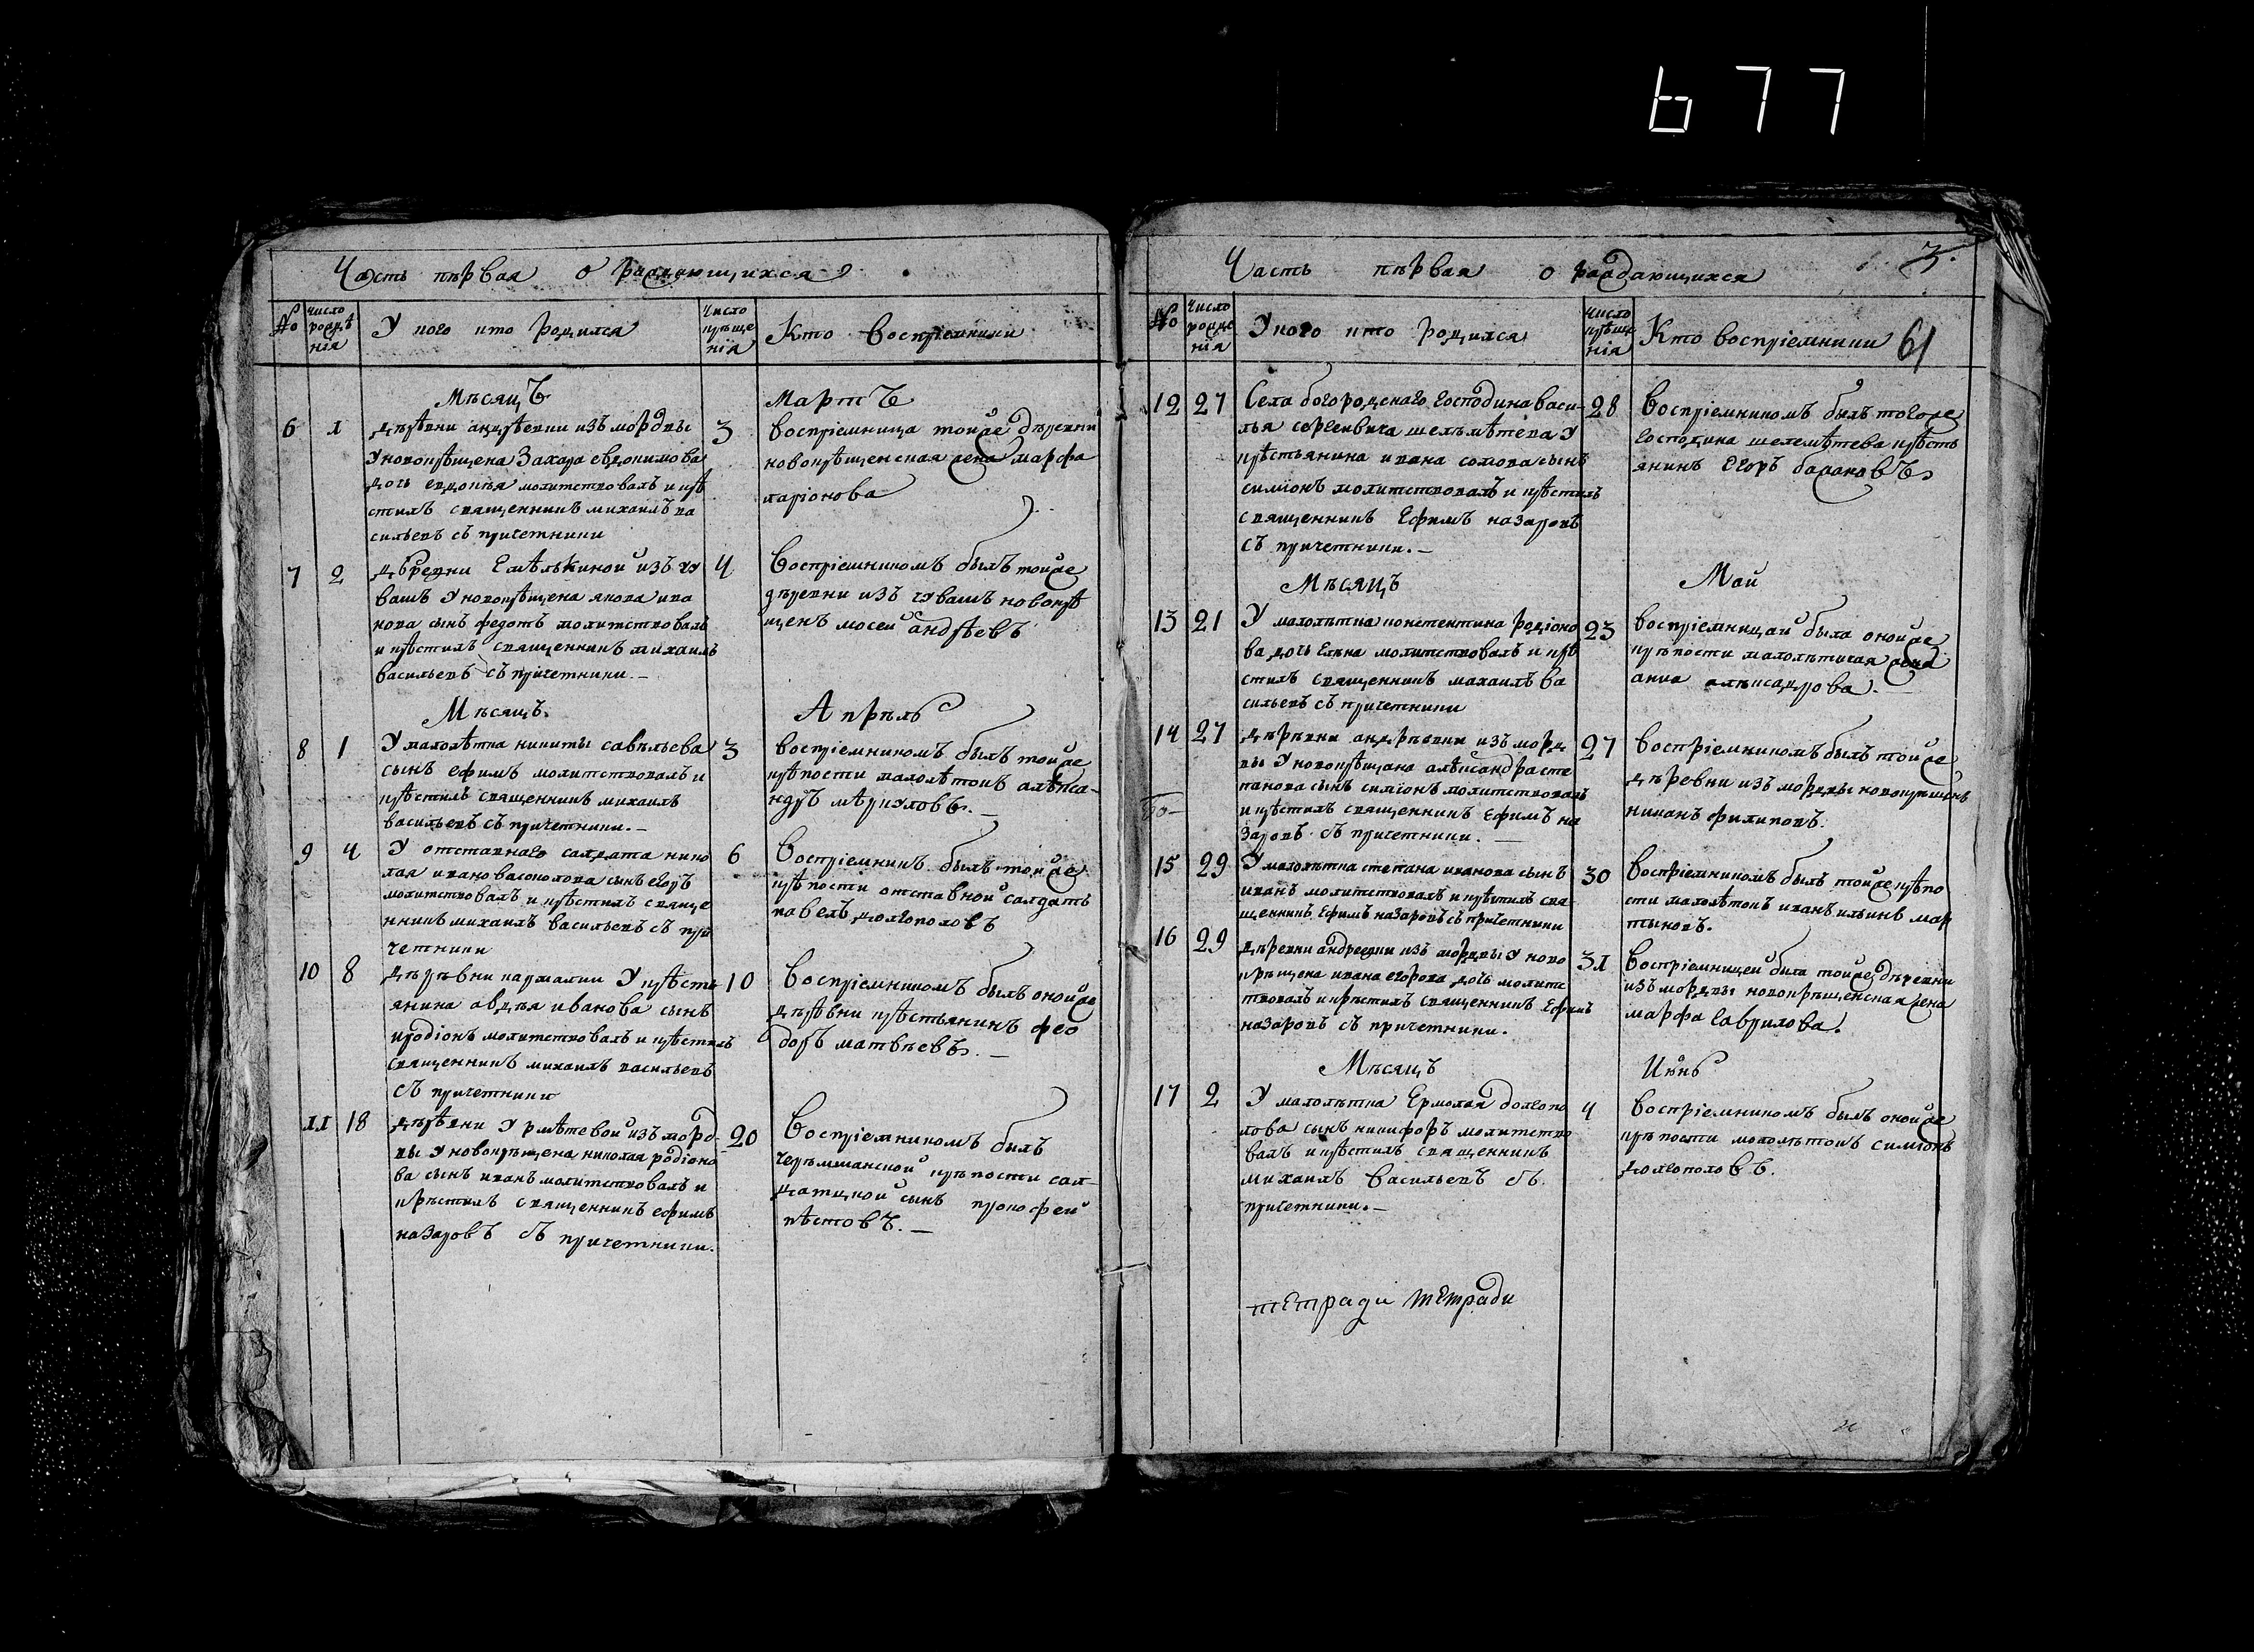 677
Часть пѣрвая о раждающихся
№
число рождѣнія
У кого кто родился
число крѣщенія
Кто восприемники
Мѣсяцъ
Мартъ
6
1
дѣрѣвни андрѣевки изъ мордвы
у новокрѣщена Захара евдокимова
дочь евдокѣя молитствовалъ и крѣ
стилъ священникъ михаилъ ва
сильевъ съ причетники
3
воспріемница тойже дѣревни
новокрѣщенская жена марфа
ларіонова
7
2
дѣревни Емѣлькиной изъ чу
вашъ у новокрѣщена якова ива
нова сынъ федотъ молитствовалъ
и крѣстилъ священникъ михаилъ
васильевъ съ причетники. –
4
воспріемникомъ былъ тойже
дѣревни изъ чувашъ новокрѣ
щенъ мосей андрѣевъ
Мѣсяцъ.
Апрѣль
8
1
У малолѣтка никиты савѣльева
сынъ ефимъ молитствовалъ и
крѣстилъ священникъ михаилъ
васильевъ съ причетники. –
3
воспріемникомъ былъ тойже
крѣпости малолѣтокъ алѣкса-
ндръ мѣркуловъ. –
9
4
У отставнаго салдата нико
лая иванова соколова сынъ егоръ
молитствовалъ и крѣстилъ свяще
нникъ михаилъ васильевъ съ при
четники
6
воспріемникъ былъ тойже
крѣпости отставной салдатъ
павелъ долгополовъ
10
8
дѣрѣвни кармалки у крѣсть
янина авдѣя иванова сынъ
иродіонъ молитствовалъ и крѣстилъ
священникъ михаилъ васильевъ
съ причетники
10
воспріемникомъ былъ онойже
дѣрѣвни крѣстьянинъ фео
доръ матвѣевъ. –
11
18
дѣрѣвни урмѣтевой изъ морд-
вы у новокрѣщена николая родіоно
ва сынъ иванъ молитствовалъ и
крѣстилъ священникъ ефимъ
назаровъ съ причетники.
20
воспріемникомъ былъ
черѣмшанской крѣпости сал-
дацкой сынъ прокофей
пѣстовъ. –
3.
Часть пѣрвая о раждающихся
№
число рожденія
У кого кто родился
число крѣщенія
Кто воспріемники
61
12
27
Села богороцкаго господина васи-
лья сергеевича шелѣмѣтева у
крѣстьянина ивана сомова сынъ
симіонъ молитствовалъ и крѣстилъ
священникъ Ефимъ назаровъ
съ причетники. –
28
воспріемникомъ былъ тогоже
господина шелемѣтева крѣсть
янинъ Егоръ балановъ
Мѣсяцъ
Май
13
21
У малолѣтка константина родіоно
ва дочь Елѣна молитствовалъ и крѣ
стилъ священникъ михаилъ ва
сильевъ съ причетники
23
воспріемницай была онойже
крѣпости малолѣткая жена
анна алѣксадрова. –
14
27
дѣрѣвни андрѣевки изъ морд
вы у новокрѣщана алѣксандра сте
панова сынъ симіонъ молитствовалъ
и крѣстилъ священникъ Ефимъ на
заровъ съ причетники. –
27
воспріемникомъ былъ тойже
дѣревни изъ мордвы новокрѣщенъ
никанъ филиповъ.
15
29
У малолѣтка степана иванова сынъ
иванъ молитствовалъ и крѣстилъ свя-
щенникъ Ефимъ назаровъ съ причетники
30
воспріемникомъ былъ тойже крѣпо
сти малолѣтокъ иванъ ильинъ мар
тыновъ.
16
29
дѣревни андреевки изъ мордвы у ново
крѣщена ивана егорова дочь молитс
твовалъ и крѣстилъ священникъ Ефимъ
назаровъ съ причетники.
31
воспріемницей была тойже дѣревни
изъ мордвы новокрѣщенская жена
марфа гаврилова.
Мѣсяцъ
Июнь
17
2
У малолѣтка Ермолая долгопо
лова сынъ никифоръ молитство
валъ и крѣстилъ священникъ
михаилъ васильевъ съ
причетники. –
4
воспріемникомъ былъ онойже
крѣпости малолѣтокъ симіонъ
долгополовъ.
тетради тетради